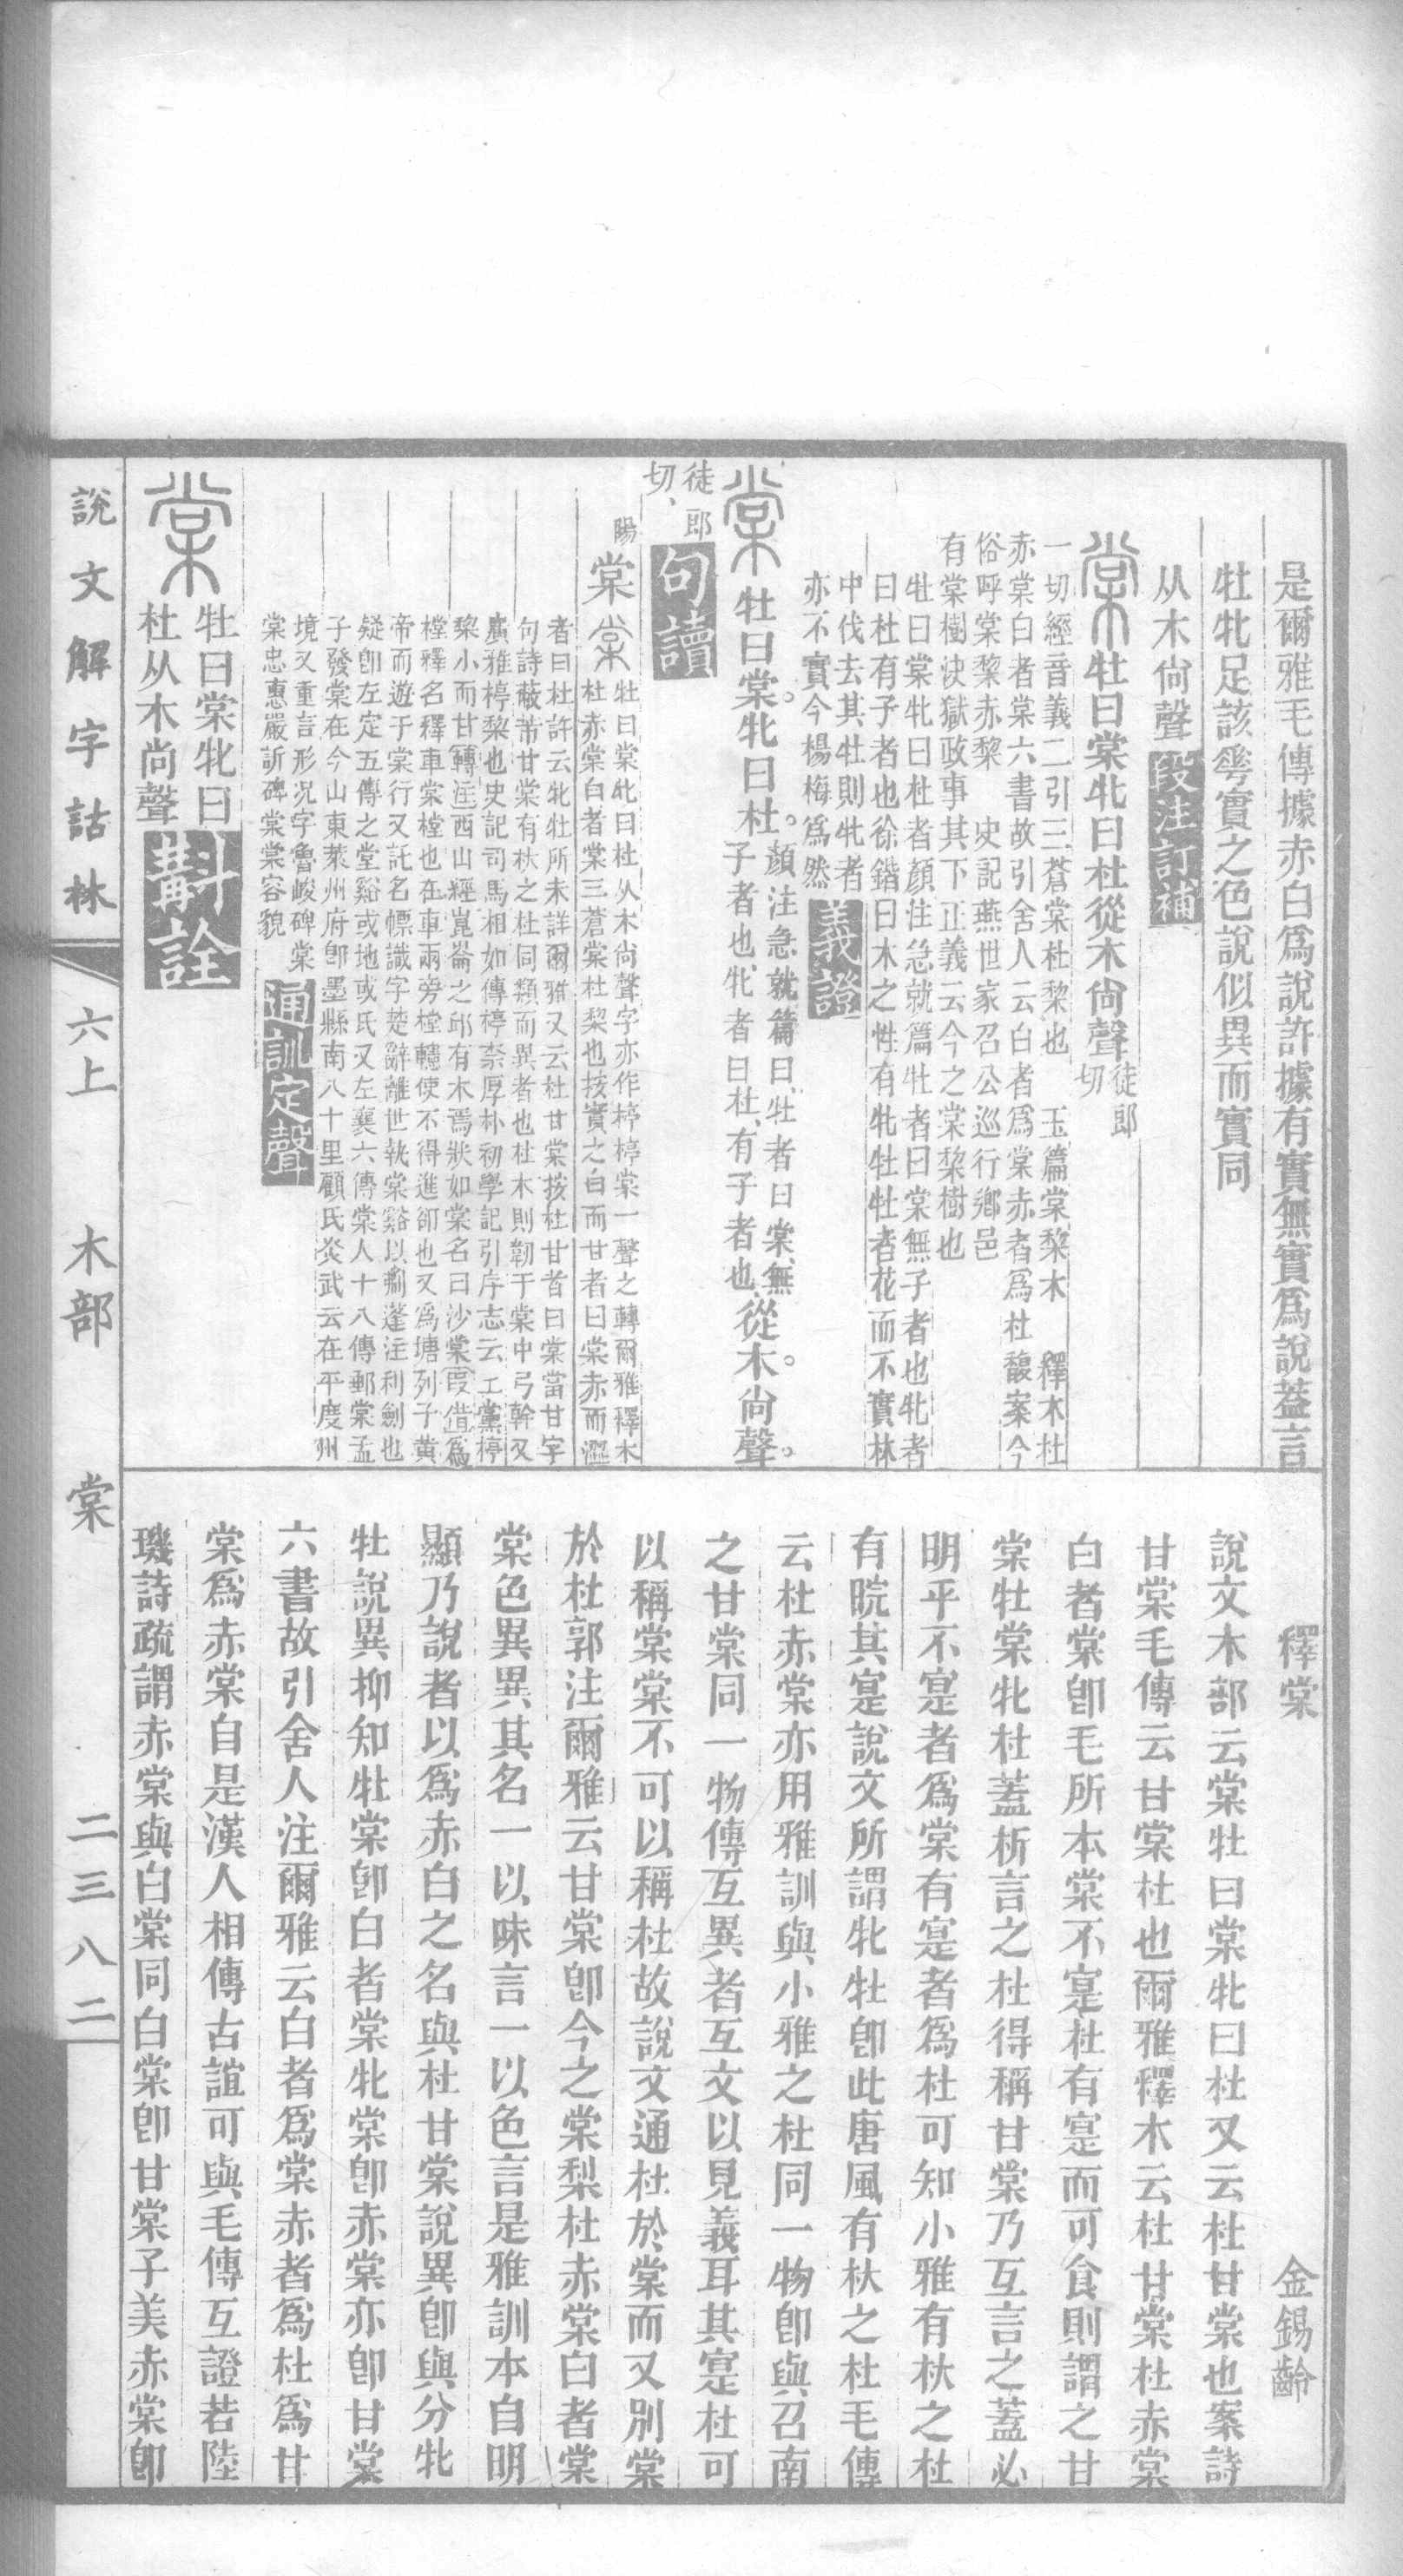 是爾雅毛傳據赤白爲說許據有實無實爲說葢言
牡牝足該𠌶實之色說似異而實同
从木尙聲段注訂補
棠牡曰棠牝曰杜從木尙聲徒郎切
一切經音義二引三蒼棠杜黎也　玉篇棠黎木　釋木杜
赤棠白者棠六書故引舍人云白者爲棠赤者爲杜馥案今
俗呼棠黎赤黎　史記燕世家召公巡行鄉邑
有棠樹決獄政事其下正義云今之棠黎樹也
牡曰棠牝曰杜者顏注急就篇牡者曰棠無子者也牝者
曰杜有子者也徐鍇曰木之性有牝牡牡者花而不實林
中伐去其牡則牝者
亦不實今楊梅爲然義證
棠牡曰棠。牝曰杜。顏注急就篇曰、牡者曰棠、無子者也、牝者曰杜、有子者也、從木。尙聲。
徒郎切、句讀
陽
棠棠牡曰棠牝曰杜从木尙聲字亦作樗樗棠一聲之轉爾雅釋木
杜赤棠白者棠三蒼棠杜棃也按實之白而甘者曰棠赤而澀
者曰杜許云牝牡所未詳爾雅又云杜甘棠按杜甘者曰棠當甘字
句詩蔽芾甘棠有杕之杜同類而異者也杜木則韌于棠中弓幹又
廣雅楟棃也史記司馬相如傳楟柰厚朴初學記引序志云上黨楟
棃小而甘轉注西山經崑崙之邱有木焉狀如棠名曰沙棠叚借爲
樘釋名釋車棠樘也在車兩旁樘幰使不得進卻也又爲塘列子黃
帝而遊于棠行又託名幖識字楚辭離世執棠谿以刜蓬注利劍也
疑卽左定五傳之堂谿或地或氏又左襄六傳棠人十八傳郵棠孟
子發棠在今山東萊州府卽墨縣南八十里顧氏炎武云在平度州
境又重言形況字魯峻碑棠
棠忠惠嚴訢碑棠棠容貌通訓定聲
棠牡曰棠牝曰
杜从木尙聲斠詮
釋棠　金錫齡
說文木部云棠牡曰棠牝曰杜又云杜甘棠也案詩
甘棠毛傳云甘棠杜也爾雅釋木云杜甘棠杜赤棠
白者棠卽毛所本棠不寔杜有寔而可食則謂之甘
棠牡棠牝杜蓋析言之杜得稱甘棠乃互言之蓋必
明乎不寔者爲棠有寔者爲杜可知小雅有杕之杜
有睆其寔說文所謂牝牡卽此唐風有杕之杜毛傳
云杜赤棠亦用雅訓與小雅之杜同一物卽與召南
之甘棠同一物傳互異者互文以見義耳其寔杜可
以稱棠棠不可以稱杜故說文通杜於棠而又別棠
於杜郭注爾雅云甘棠卽今之棠梨杜赤棠白者棠
棠色異異其名一以味言一以色言是雅訓本自明
顯乃說者以爲赤白之名與杜甘棠說異卽與分牝
牡說異抑知牡棠卽白者棠牝棠卽赤棠亦卽甘棠
六書故引舍人注爾雅云白者爲棠赤者爲杜爲甘
棠爲赤棠自是漢人相傳古誼可與毛傳互證若陸
璣詩疏謂赤棠與白棠同白棠卽甘棠子美赤棠卽
說文解字詁林　六上　木部　棠　二三八二